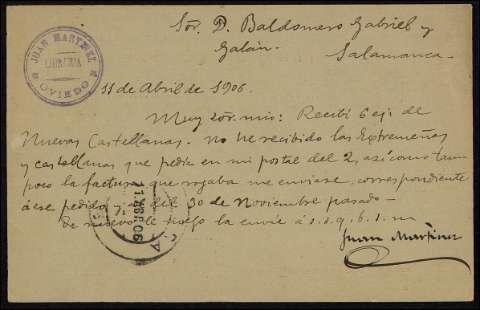 JUAN MARTINEZ
LIBRERIA
OVIEDO
Sor. D. Baldomero Gabriel y
Galán.
Salamanca.
11 de Abril de 1906.
Muy sor. mio: Recibí 6 ej. de
Nuevas Castellanas. No he recibido las Extremeñas
y castellanas que pedía en mi postal del 2, así como tam
poco la factura que rogaba me enviase, correspondiente
á ese pedido y al del 30 de Noviembre pasado—
De nuevo le ruego la envíe á s. s. q. b. s. m
Juan Martinez
11 ABR 06